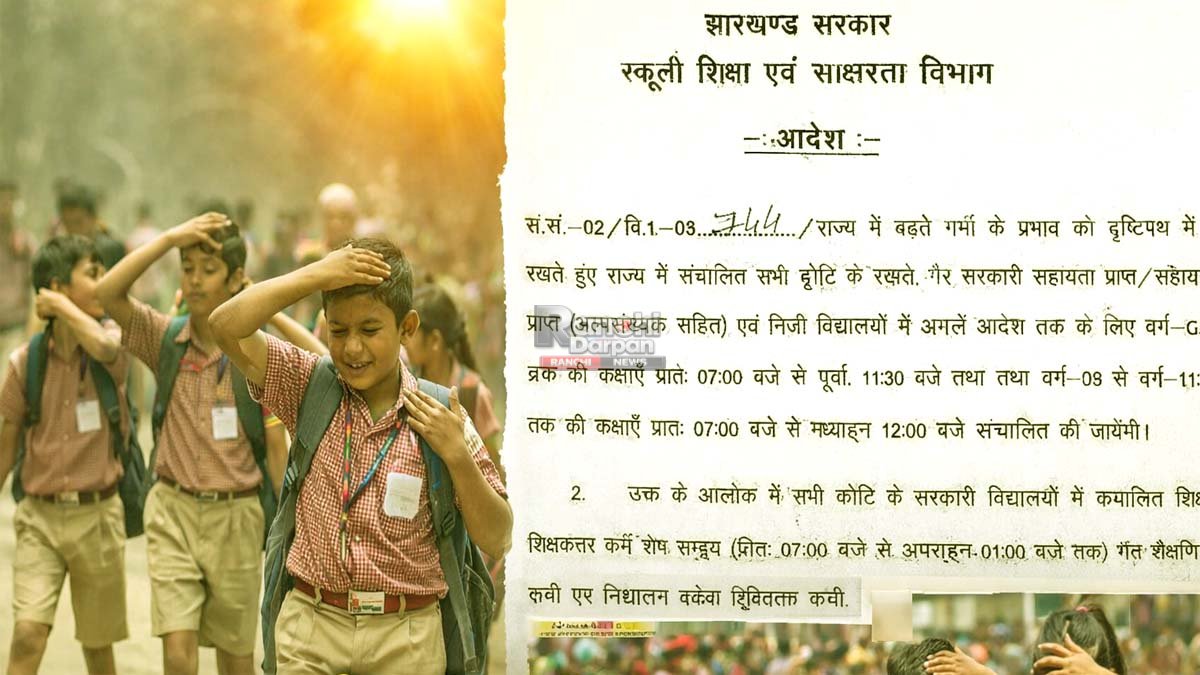 झारखण्ड सरकार
स्कूली शिक्षा एवं साक्षरता विभाग
-ः आदेश ः-
सं.सं.-02/वि.1-03...744.../राज्य में बढ़ते गर्मी के प्रभाव को दृष्टिपथ में
रखते हुंए राज्य में संचालित सभी के रखते. गैर सरकारी सहायता प्राप्त/सहाय
प्राप्त (अल्पसंख्यक सहित) एवं निजी विद्यालयों में अगलें आदेश तक के लिए वर्ग-G
की कक्षाएँ प्रातः 07:00 बजे से पूर्वा. 11:30 बजे तथा तथा वर्ग-09 से वर्ग-11
तक की कक्षाएँ प्रातः 07:00 बजे से मध्याह्न 12:00 बजे संचालित की जायेंमी।
2. उक्त के आलोक में सभी कोटि के सरकारी विद्यालयों में कयालित शि
शिक्षकत्तर कर्मे शेष (प्रितः 07:00 बजे से अपराह्न 01:00 बजे तक) गत शैक्षणि
कवी एर निधालन वकेवा कवी.
Ranchi
Darpan
RANCHI NEWS